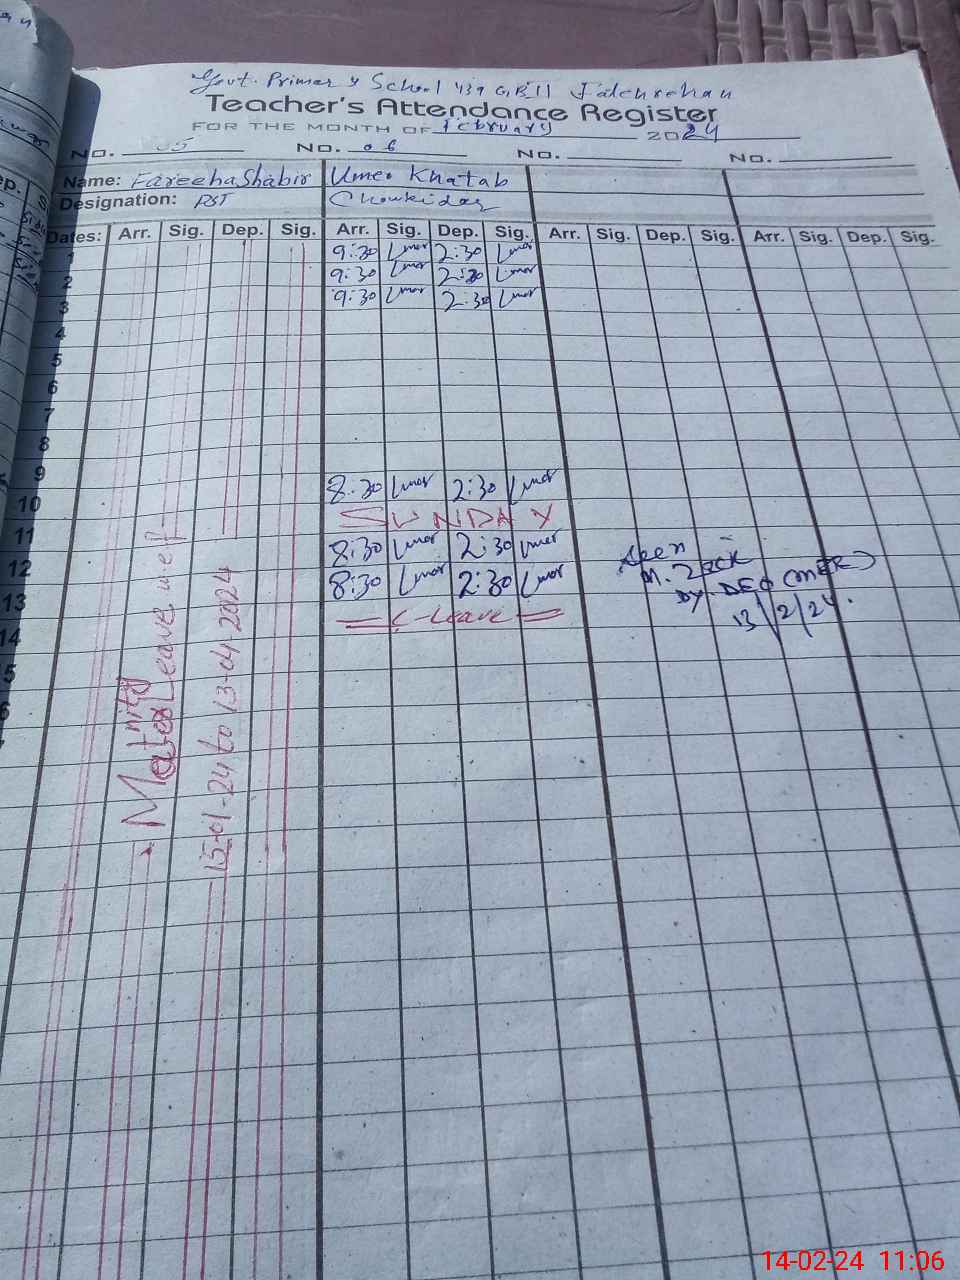 Govt. Primary School 439 G.B II
Teacher's Attendance Register
FOR THE MONTH OF February 2024
NO. 05 NO. 06 NO. NO.
Name: Fareeha Shabir Umer Khatab
Designation: PST Chowkidar
Dates: Arr. Sig. Dep. Sig. Arr. Sig. Dep. Sig. Arr. Sig. Dep. Sig. Arr. Sig. Dep. Sig.
1 9:30 Umer 2:30 Umer
2 9:30 Umer 2:30 Umer
3 9:30 Umer 2:30 Umer
4
5
6
7
8
9
10 8:30 Umer 2:30 Umer
11 SUNDAY
12 8:30 Umer 2:30 Umer
13 8:30 Umer 2:30 Umer
14 C-Leave
Maternity Leave w.e.f
15-01-24 to 13-04-2024
Seen
Dy. DEO (MEE)
13/2/24.
14-02-24 11:06